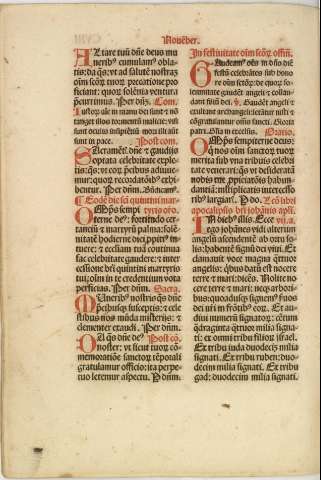 Nouẽber.
ALtare tuũ dñe deus mu
neribꝰ cumulam⁹ obla
tis: da q̃s: vt ad salutẽ nostrã z
oĩm scõrũ tuorũ precatiõe pro
ficiant: quorũ sollẽnia ventura
precurrimus. Per dñm. Com.
IUstorũ aĩe in manu dei sunt z nõ
tanget illos tormentũ malicie: visi
sunt oculis insipiẽtiũ mori illi aũt
sunt in pace. Post com.
SAcramẽtʒ dñe z gaudijs
optata celebritate exple
tis: q̃s: vt eoꝝ p̃cibus adiuue
mur: quoꝝ recordatiõibꝰ exhi
bentur. Per dñm.
Eodẽ die scĩ quintini mar
OMp̃s sempi tyris oro.
terne deꝰ: fortitudo cer
tantiũ z martyrũ palma: solẽ
nitatẽ hodierne diei
tuere: z ecclesiã tuã continua
fac celebritate gaudere: z inter
cessione bt̃i quintini martyris
tui: oĩm in te credentiũ vota
perficias. Per dñm. Sacrꝫ.
MUneribꝰ nostris q̃s dñe
p̃cibusq̃ susceptis: z cele
stibus nos mũda misterijs: z
clementer exaudi. Per dñm.
DA q̃s dñe deꝰ Post cõ.
noster: vt sicut tuoꝝ cõ
memoratiõe sanctoꝝ tẽporali
gratulamur officio: ita perpe
tuo letemur aspectu. P dñm.
In festiuitate oĩm scõꝝ offm̃.
GAudeam⁹ oẽs in dño diẽ
festũ celebrãtes sub hono
re oĩm scõꝝ: de quoꝝ so
lemnitate gaudẽt angeli z collau
dant filiũ dei. v. Gaudẽt angeli z
exultant archangeli letant̃ iusti z
gratulant̃ omnes sancti. Gloria
patri. Glĩa in excelsis. Oratio.
OMp̃s sempiterne deus:
qui nos oĩm sanctoꝝ tuoꝝ
merita sub vna tribuis celebri
tate venerari: q̃s vt desideratã
nobis tue ꝓpiciatõis habun
dantiã: multiplicatis intercesso
ribꝰ largiaris. P do. Lec̃ libri
apocalypsis bt̃i johãnis apłi.
IN diebꝰ illis. Ecce vij.a.
ego johãnes vidi alterum
angelũ ascendentẽ ab ortu so
lis: habentẽ signũ dei viui. Et
clamauit voce magna q̃tuor
angelis: q̃bus datũ est nocere
terre z mari: dicẽs. Nolite no
cere terre z mari: neq̃ arbori
bus: quoadusq̃ signem⁹ seruos
dei nr̃i in frõtibꝰ eoꝝ. Et au
diui numerũ signatoꝝ: cẽtum
q̃draginta q̃ttuor milia signa
ti: ex omni tribu filioꝝ israel.
Ex tribu iuda duodecĩ milia
signati. Ex tribu ruben: duo
decim milia signati. Ex tribu
gad: duodecim milia signati.